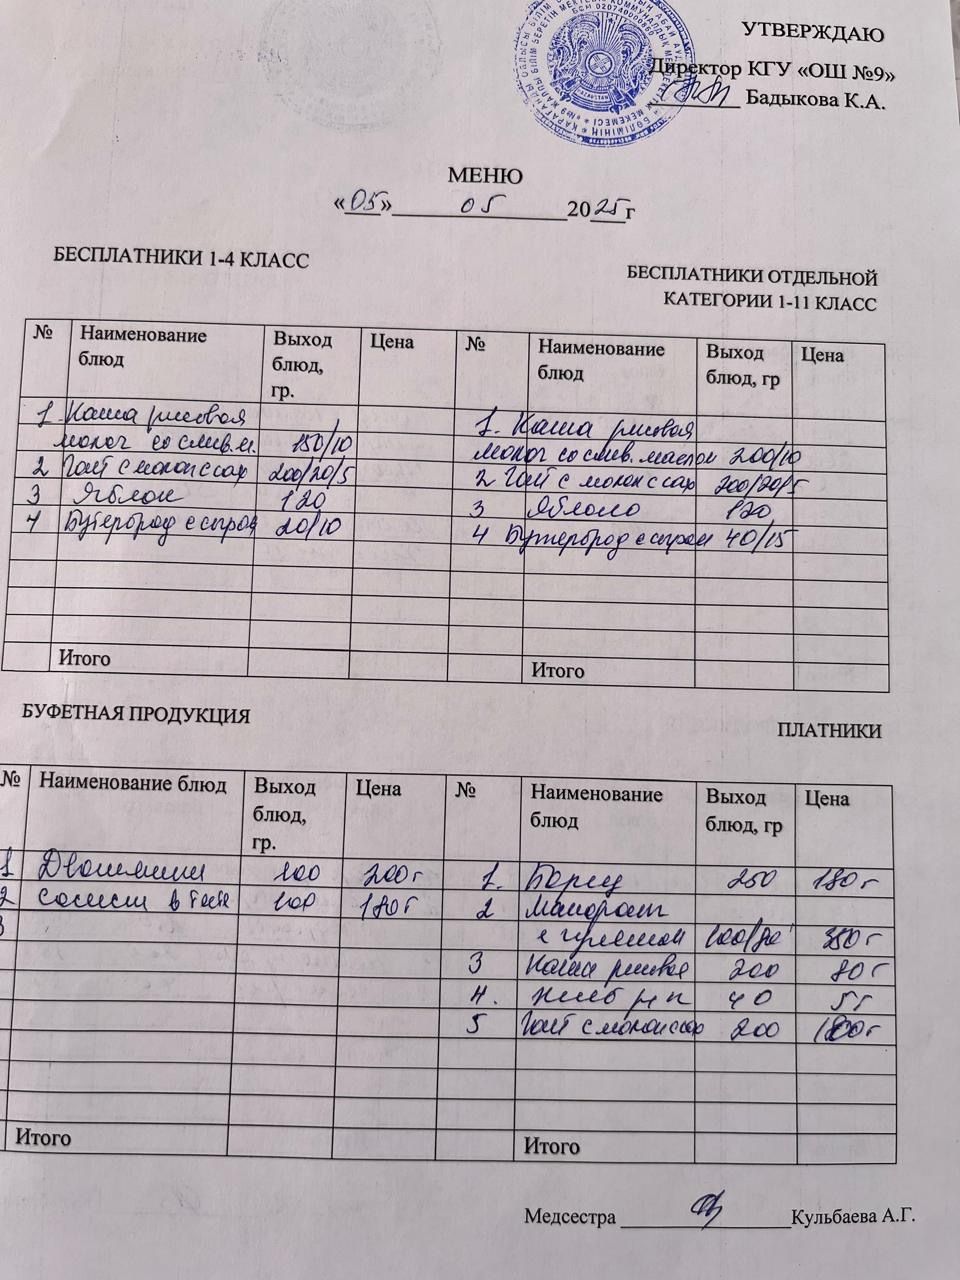 УТВЕРЖДАЮ
Директор КГУ «ОШ №9»
Бадыкова К.А.
МЕНЮ
«05» 05 2025г
БЕСПЛАТНИКИ 1-4 КЛАСС
БЕСПЛАТНИКИ ОТДЕЛЬНОЙ
КАТЕГОРИИ 1-11 КЛАСС
№ Наименование блюд Выход блюд, гр. Цена № Наименование блюд Выход блюд, гр Цена
1. Каша рисовая 1. Каша рисовая
молоч со слив.м. 150/10 молоч со слив. маслом 200/10
2 Чай с молок с сах 200/20/5 2 Чай с молок с сах 200/20/5
3 Яблоки 120 3 Яблоко 120
4 Бутерброд с сыром 20/10 4 Бутерброд с сыром 40/15
Итого Итого
БУФЕТНАЯ ПРОДУКЦИЯ
ПЛАТНИКИ
№ Наименование блюд Выход блюд, гр. Цена № Наименование блюд Выход блюд, гр Цена
1 100 200т 1. Борщ 250 180т
2 Сосиски в тесте 100 180т 2
3 100/80 350т
3 Каша рисовая 200 80т
4. хлеб рж п 40 5т
5 Чай с молок с сах 200
Итого Итого
Медсестра Кульбаева А.Г.